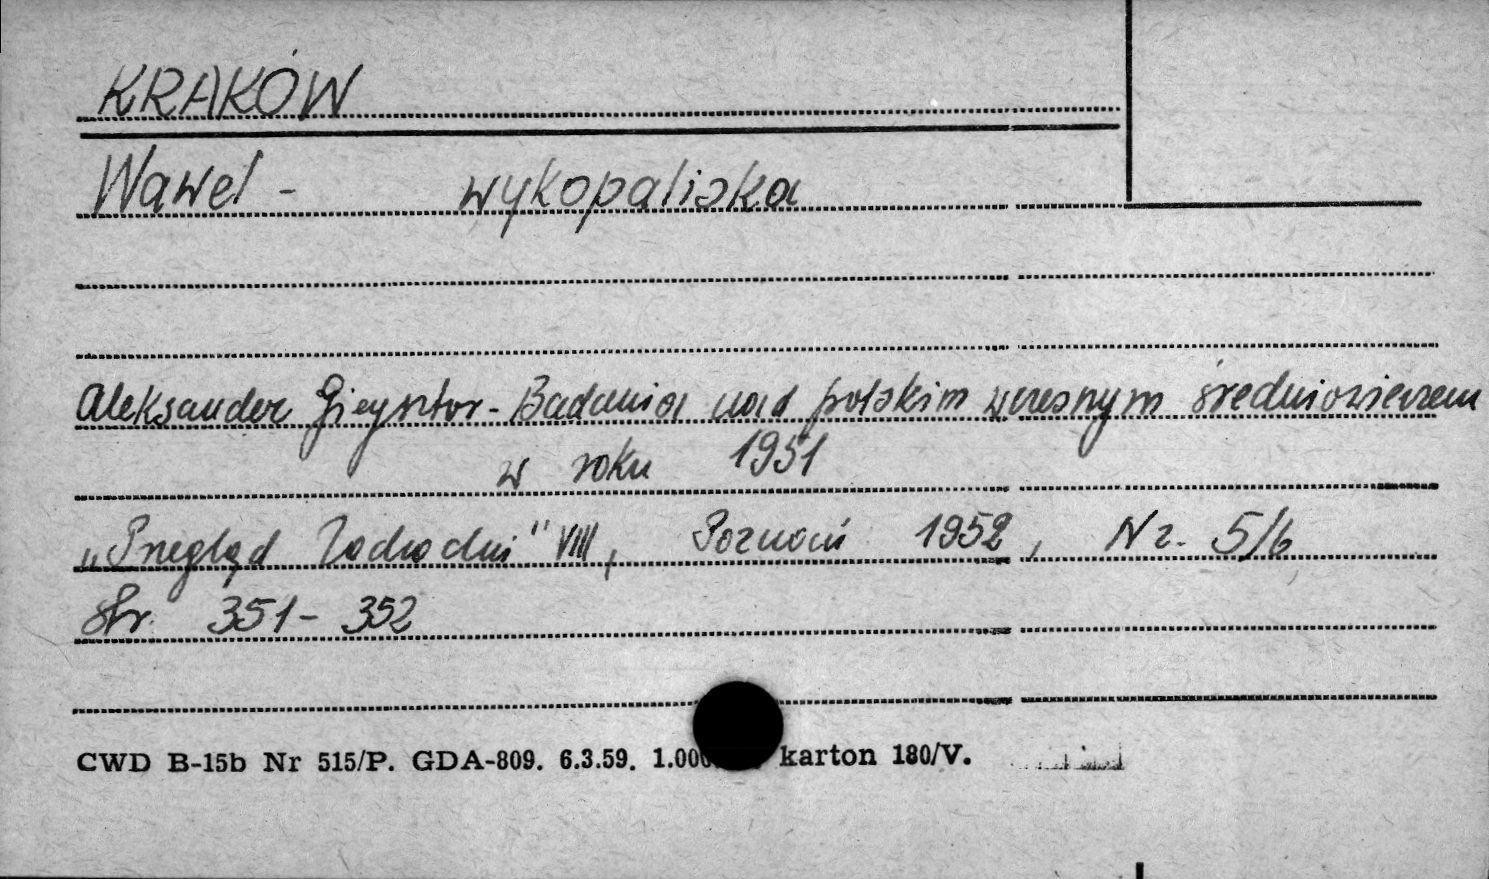 KRAKÓW
Wawel - wykopaliska
Aleksander Gieysztor - Badania nad polskim wczesnym średniowieczem
w roku 1951
„Przegląd Zachodni" VIII, Poznań 1952, Nr. 5/6
Str. 351-352
CWD B-15b Nr 515/P. GDA-809. 6.3.59. 1.000 karton 180/V.